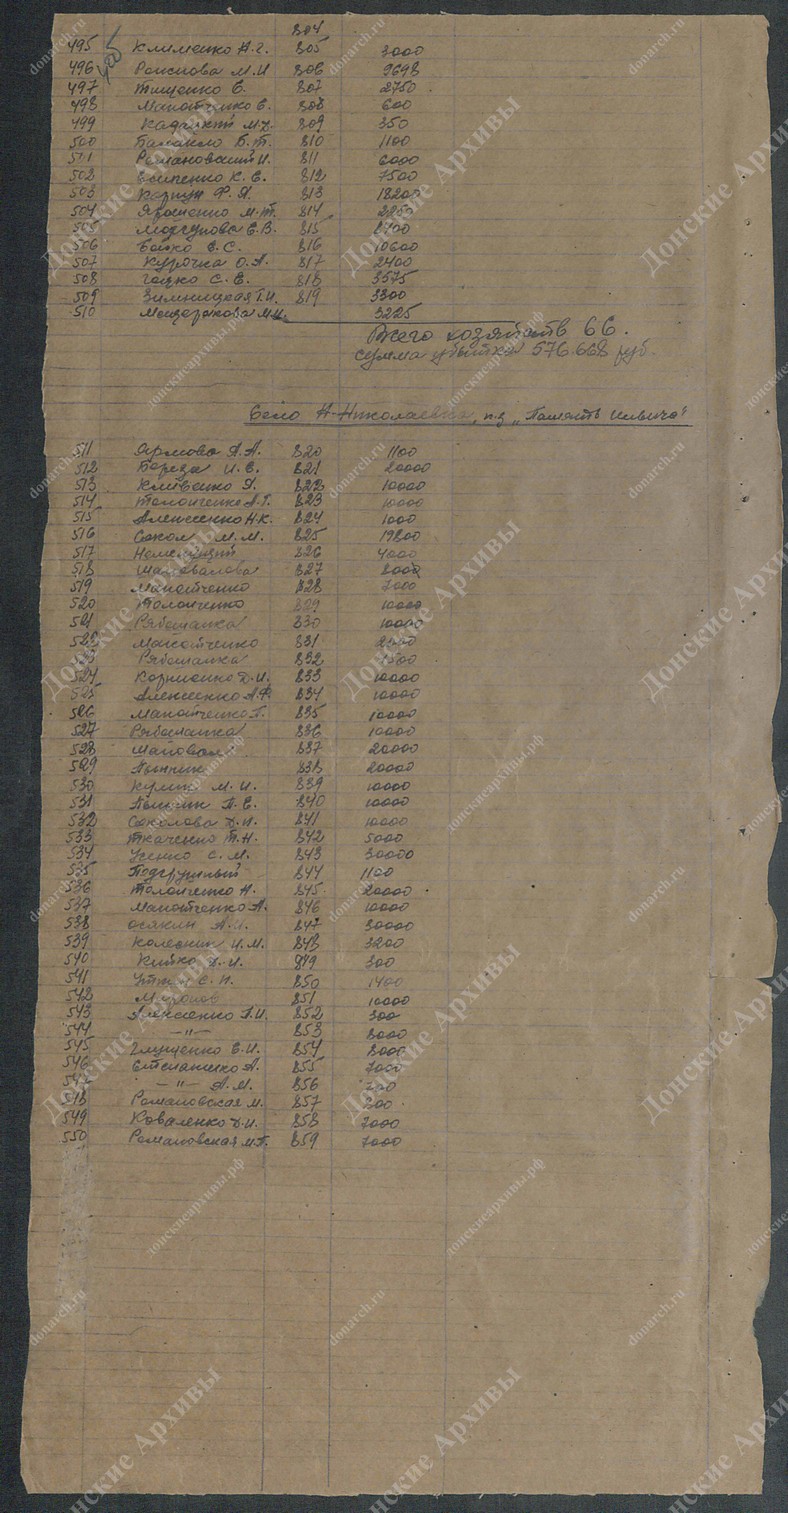 804
495 Клименко Н.Г. 805 3000
496 М.И. 806 9698
497 Тищенко Е. 807 2750
498 Манойченко Е. 808 600
499 М.Д. 809 350
500 Б.Т. 810 1100
501 Романовский И. 811 6000
502 Есипенко К.Е. 812 7500
503 Коржук Ф.Я. 813 18200
504 Ярошенко М.Т. 814
505 Моргунова Е.В. 815
506 Бойко Е.С. 816 10600
507 Курочка О.А. 817 2400
508 Гайко С.Е. 818 3575
509 Зимницкая Т.И. 819 3300
510 Мещерякова М.И. 3225
Всего хозяйств 66.
сумма убытка 576.668 руб.
Село Н-Николаевка, п-з "Память Ильича"
511 А.А. 820 1100
512 Береза И.Е. 821 20000
513 822 10000
514 Толопченко А.Т. 823 10000
515 Алексеенко Н.К. 824 1000
516 Сокол М.М. 825 19800
517 826 4000
518 Шаповалова 827 8000
519 Манойченко 828 7000
520 Толопченко 829 10000
521 Рябошапка 830 10000
522 Манойченко 831 2000
523 Рябошапка 832
524 Корниенко Д.И. 833 10000
525 Алексеенко А.Ф. 834 10000
526 Манойченко П. 835 10000
527 Рябошапка 836 10000
528 Шаповал 837 20000
529 838 20000
530 Кулик М.И. 839 10000
531 А.Е. 840 10000
532 Соколова Д.И. 841 10000
533 Ткаченко Т.Н. 842 5000
534 Усенко С.М. 843 30000
535 Подгрушный 844 1100
536 Толопченко Н. 845 20000
537 Манойченко А. 846 10000
538 А.И. 847 30000
539 Колесник И.М. 848 3200
540 Кийко Д.И. 849 300
541 850 1400
542 Миронов 851 10000
543 Алексеенко А.И. 852 300
544 —"— 853 8000
545 Глущенко Е.И. 854 8000
546 А. 855 7000
547 —"— А.М. 856
548 Романовская М. 857
549 Коваленко Д.И. 858 7000
550 Романовская М.П. 859 7000
Донские Архивы
donarch.ru
донскиеархивы.рф